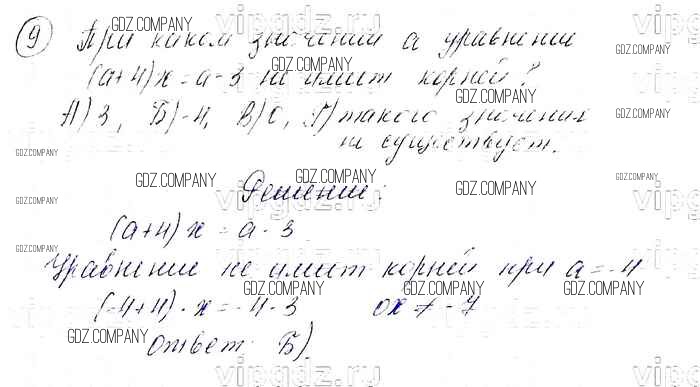 9 При каком значении а уравнение
(а+4)х = а-3 не имеет корней?
А) 3, Б) -4, В) 0, Г) такого значения
не существует.
Решение:
(а+4)х = а-3
Уравнение не имеет корней при а = -4
(-4+4)·х = -4-3 0х ≠ -7
Ответ: Б).
GDZ.COMPANY
vipgdz.ru